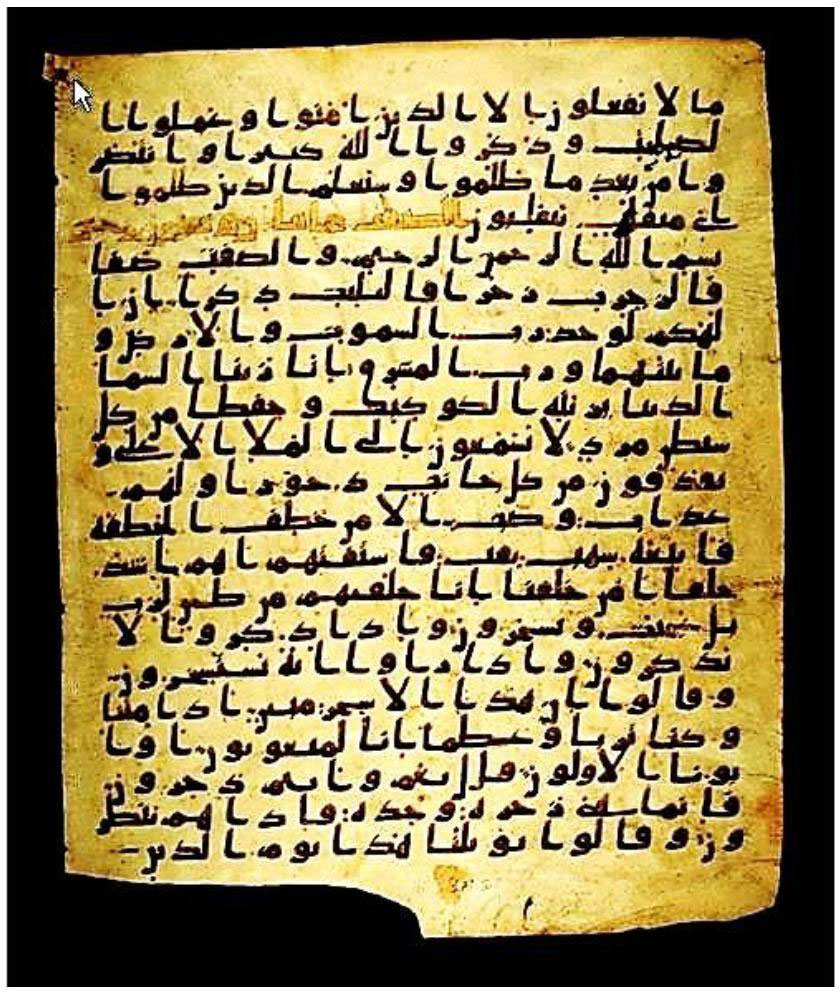 ما لا يفعلون الا الذين امنوا وعملوا ا
لصلحت وذكروا الله كثيرا وانتصر
وا من بعد ما ظلموا وسيعلم الذين ظلموا ا
ي منقلب ينقلبون
بسم الله الرحمن الرحيم والصفت صفا
فالزجرت زجرا فالتليت ذكرا ان ا
لهكم لوحد رب السموت والارض و
ما بينهما ورب المشرق انا زينا السما
الدنيا بزينه الكوكب وحفظا من كل
شيطن مرد لا يسمعون الى الملا الاعلى و
يقذفون من كل جانب دحورا ولهم
عذاب وصب الا من خطف الخطفه
فاتبعه شهب ثقب فاستفتهم اهم اشد
خلقا ا من خلقنا انا خلقنهم من طين لزب
بل عجبت ويسخرون واذا ذكروا لا
يذكرون واذا راوا ايه يستسخرون
وقالوا ان هذا الا سحر مبين اذا متنا
وكنا ترابا وعظما انا لمبعوثون اوا
باونا الاولون قل نعم وانتم دخرون
فانما هي زجره وحده فاذا هم ينظر
ون وقالوا يويلنا هذا يوم الدين